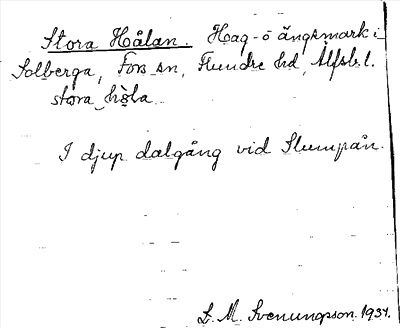 Stora Hålan. Hag- o ängsmark i
Solberga, Fors sn, Flundre hd, Älfsb. l.
stora hòla
I djup dalgång vid Slumpån.
L. M. Svenungsson. 1934.